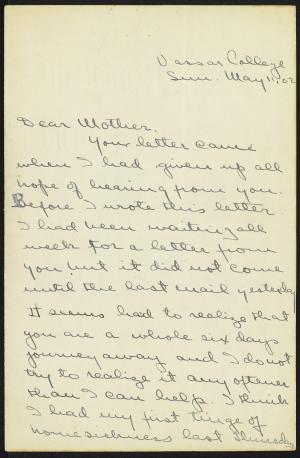 Vassar College
Sun. May 11, 02
Dear Mother.
Your letter came
when I had given up all
hope of hearing from you.
Before I wrote this letter
I had been waiting all
week for a letter from
you but it did not come
until the last mail yesterday
It seems hard to realize that
you are a whole six days
journey away and I do not
try to realize it any oftener
than I can help. I think
I had my first tinge of
homesickness last Thursday